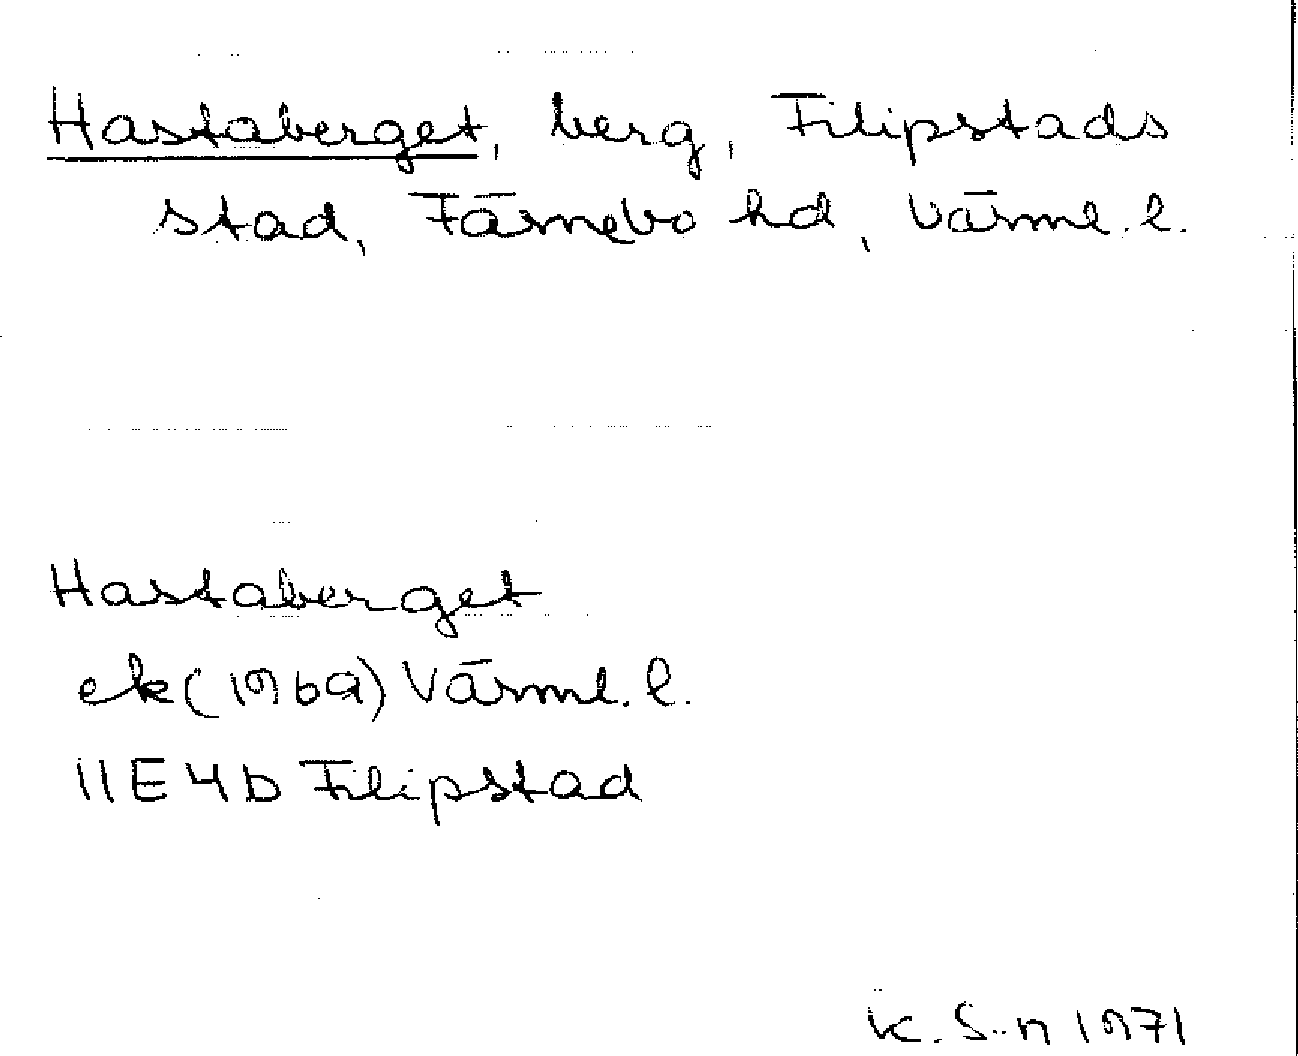 Hastaberget, berg, Filipstads
stad, Färnebo hd, Värml. l.
Hastaberget
ek (1969) Värml. l.
11E4b Filipstad
K. S-n 1971